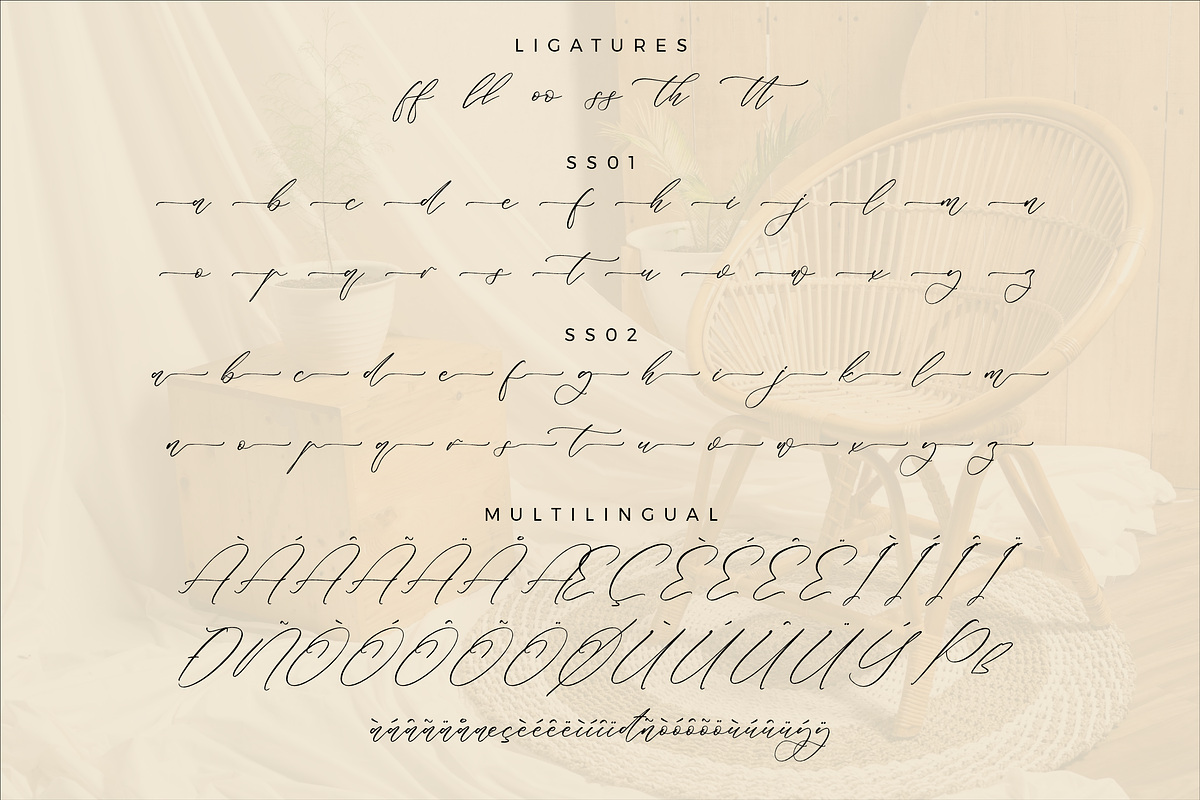 LIGATURES
ff ll oo ss th tt
SS01
a b c d e f h i j l m n
o p q r s t u v w x y z
SS02
a b c d e f g h i j k l m
n o p q r s t u v w x y z
MULTILINGUAL
ÀÁÂÃÄÅÆÇÈÉÊËÌÍÎÏ
ÐÑÒÓÔÕÖØÙÚÛÜÝ Þß
àáâãäåæçèéêëìíîïđñòóôõöùúûüýÿ